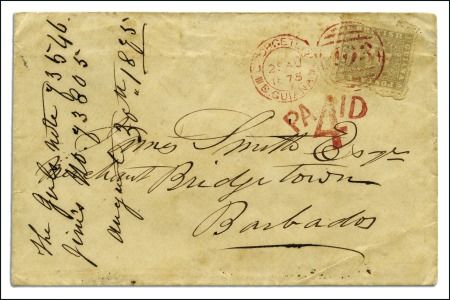 The Gold note 73546.
Jim's No 73605
August 30th 1875
GEORGETOWN
25 AU
1875
B. GUIANA
PAID
4
James Smith Esqr
Merchant Bridgetown
Barbados